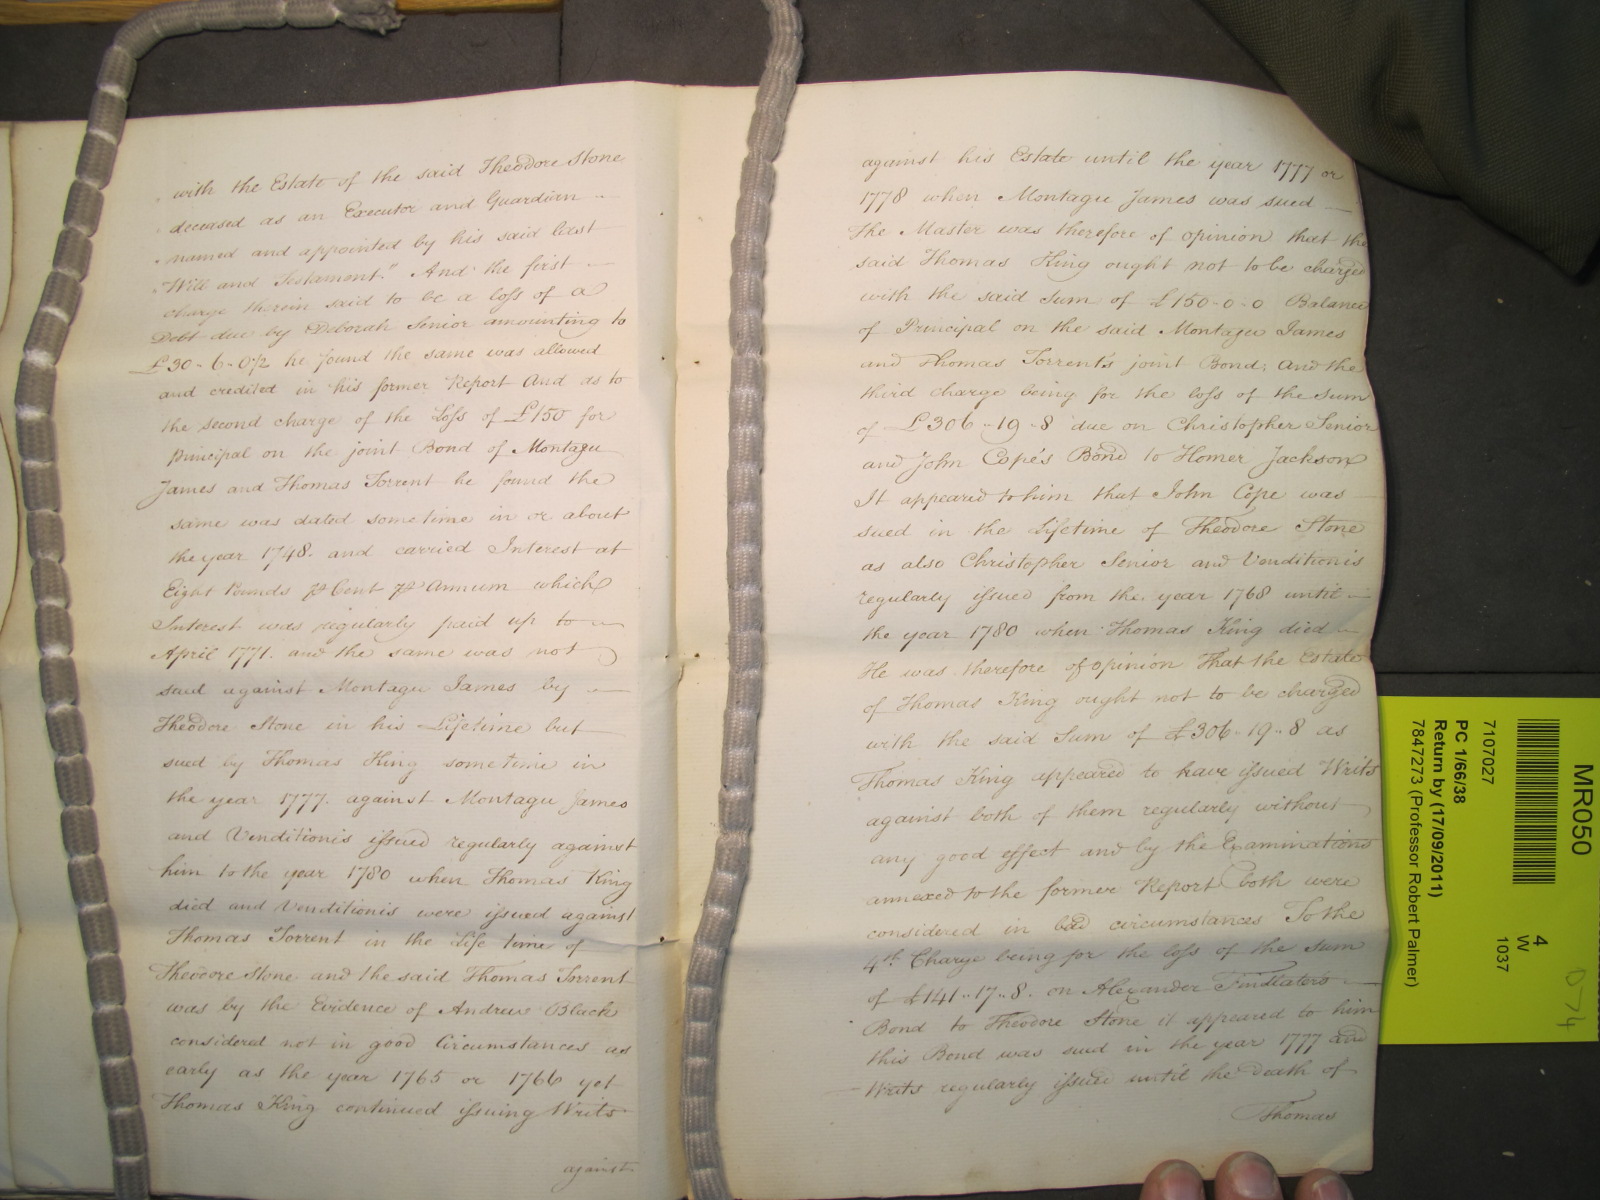 with the Estate of the said Theodore Stone
deceased as an Executor and Guardian
named and appointed by his said last
"Will and Testament." And the first
charge therein said to be a loss of a
Debt due by Deborah Senior amounting to
£30-6-0½ he found the same was allowed
and credited in his former Report And as to
the second charge of the Loss of £150 for
Principal on the joint Bond of Montagu
James and Thomas Torrent he found the
same was dated sometime in or about
the year 1748. and carried Interest at
Eight Pounds ⅌ Cent ⅌ Annum which
Interest was regularly paid up to
April 1771. and the same was not
sued against Montagu James by
Theodore Stone in his Lifetime but
sued by Thomas King sometime in
the year 1777. against Montagu James
and Venditionis issued regularly against
him to the year 1780 when Thomas King
died and Venditionis were issued against
Thomas Torrent in the Life time of
Theodore Stone and the said Thomas Torrent
was by the Evidence of Andrew Black
considered not in good Circumstances as
early as the year 1765 or 1766 yet
Thomas King continued issuing Writs
against
against his Estate until the year 1777 or
1778 when Montagu James was sued
The Master was therefore of opinion that the
said Thomas King ought not to be charged
with the said Sum of £150-0-0 Balance
of Principal on the said Montagu James
and Thomas Torrent's joint Bond; And the
third charge being for the loss of the sum
of £306-19-8 due on Christopher Senior
and John Cope's Bond to Homer Jackson
It appeared to him that John Cope was
sued in the Lifetime of Theodore Stone
as also Christopher Senior and Venditionis
regularly issued from the year 1768 until
the year 1780 when Thomas King died
He was therefore of opinion That the Estate
of Thomas King ought not to be charged
with the said Sum of £306-19-8 as
Thomas King appeared to have issued Writs
against both of them regularly without
any good effect and by the Examinations
annexed to the former Report both were
considered in bad circumstances To the
4th Charge being for the loss of the sum
of £141-17-8. on Alexander Findlater's
Bond to Theodore Stone it appeared to him
this Bond was sued in the year 1777 and
Writs regularly issued until the Death of
Thomas
MR050
7107027
PC 1/66/38
Return by (17/09/2011)
7847273 (Professor Robert Palmer)
4
W
1037
D74